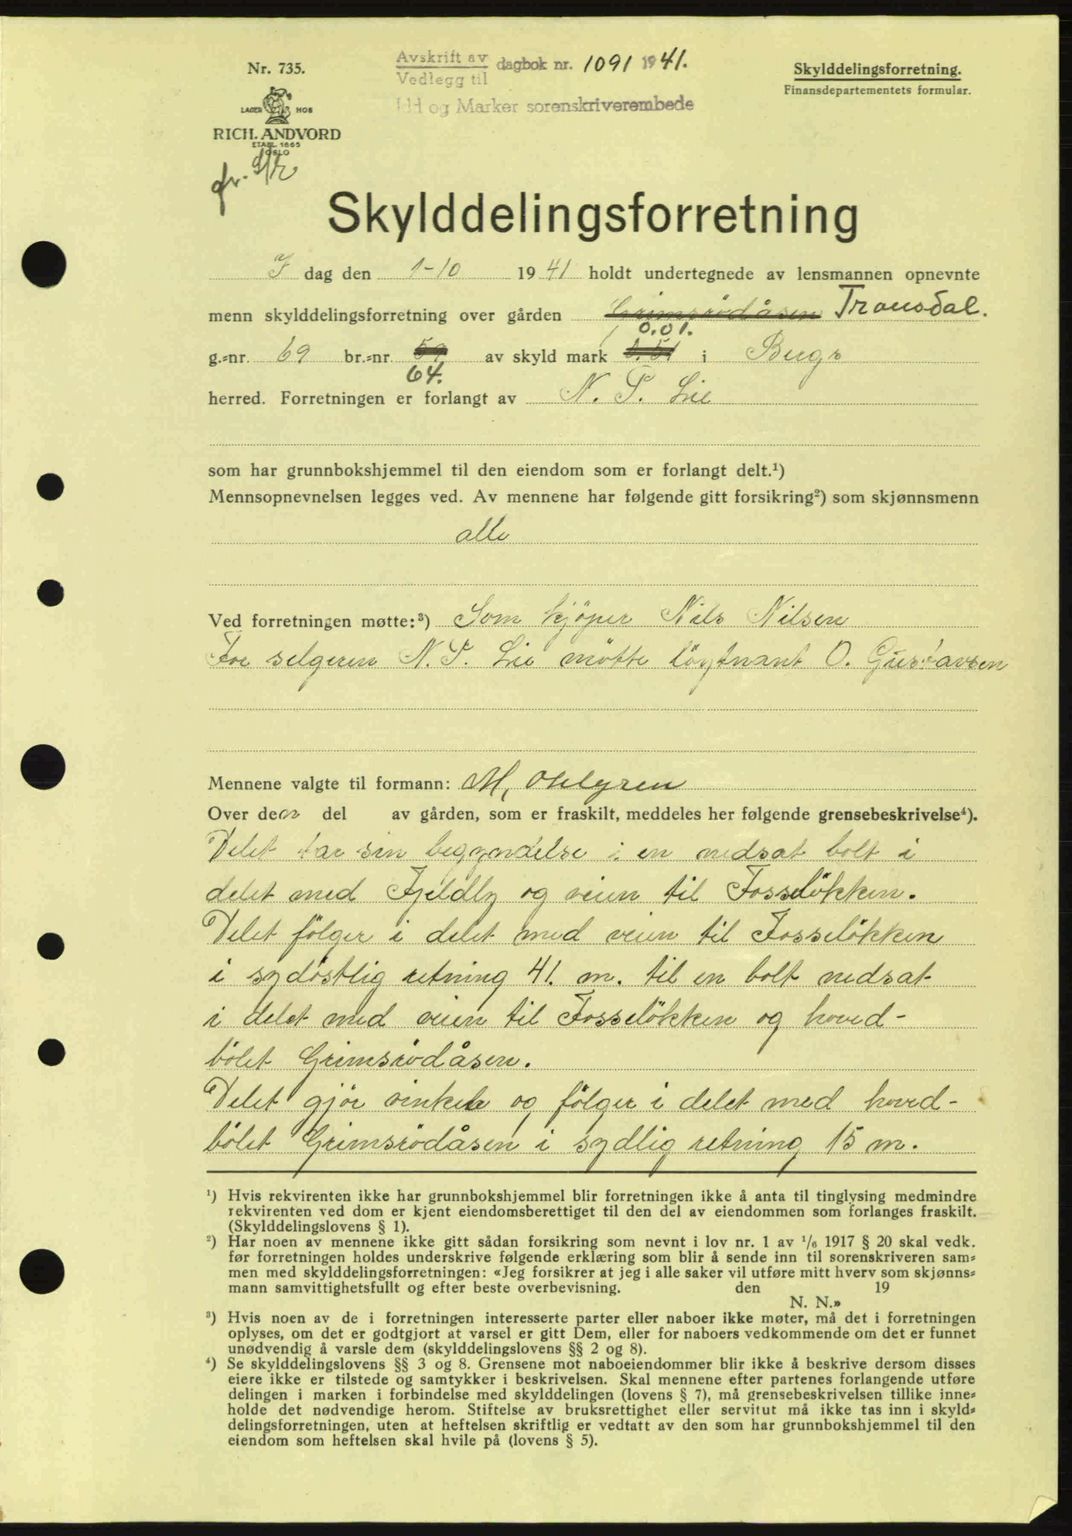 Nr. 735.
LAGER HOS
RICH. ANDVORD
ETABL. 1865
OSLO
Avskrift av
Vedlegg til
dagbok nr. 1091 1941.
Idd og Marker sorenskriverembede
Skylddelingsforretning.
Finansdepartementets formular.
Skylddelingsforretning
I dag den 1-10 1941 holdt undertegnede av lensmannen opnevnte
menn skylddelingsforretning over gården Grimsrödåsen Transdal.
0.01.
g.=nr. 69 br.=nr. 59 av skyld mark i Berg
64.
herred. Forretningen er forlangt av N. P. Lie
som har grunnbokshjemmel til den eiendom som er forlangt delt.¹)
Mennsopnevnelsen legges ved. Av mennene har følgende gitt forsikring²) som skjønnsmenn
alle
Ved forretningen møtte:³) Som kjöper Nils Nilsen
For selgeren N. P. Lie mötte löytnant O. Gustavsen
Mennene valgte til formann: M. Ohlgren
Over den del av gården, som er fraskilt, meddeles her følgende grensebeskrivelse⁴).
Delet tar sin begyndelse i en nedsat bolt i
delet med Fjeldly og veien til Fosselökken.
Delet fölger i delet med veien til Fosselökken
i sydöstlig retning 41. m. til en bolt nedsat
i delet med veien til Fosselökken og hoved-
bölet Grimsrödåsen.
Delet gjör vinkel og fölger i delet med hoved-
bölet Grimsrödåsen i sydlig retning 15 m.
¹) Hvis rekvirenten ikke har grunnbokshjemmel blir forretningen ikke å anta til tinglysing medmindre
rekvirenten ved dom er kjent eiendomsberettiget til den del av eiendommen som forlanges fraskilt.
(Skylddelingslovens § 1).
²) Har noen av mennene ikke gitt sådan forsikring som nevnt i lov nr. 1 av ¹/₆ 1917 § 20 skal vedk.
før forretningen holdes underskrive følgende erklæring som blir å sende inn til sorenskriveren sam=
men med skylddelingsforretningen: «Jeg forsikrer at jeg i alle saker vil utføre mitt hverv som skjønns=
mann samvittighetsfullt og efter beste overbevisning. den 19
N. N.»
³) Hvis noen av de i forretningen interesserte parter eller naboer ikke møter, må det i forretningen
oplyses, om det er godtgjort at varsel er gitt Dem, eller for naboers vedkommende om det er funnet
unødvendig å varsle dem (skylddelingslovens §§ 2 og 8).
⁴) Se skylddelingslovens §§ 3 og 8. Grensene mot naboeiendommer blir ikke å beskrive dersom disses
eiere ikke er tilstede og samtykker i beskrivelsen. Skal mennene efter partenes forlangende utføre
delingen i marken i forbindelse med skylddelingen (lovens § 7), må grensebeskrivelsen tillike inne=
holde det nødvendige herom. Stiftelse av bruksrettighet eller servitut må ikke tas inn i skyld=
delingsforretningen, uten at heftelsen skriftlig er vedtatt av den som har grunnbokshjemmel til den
eiendom som heftelsen skal hvile på (lovens § 5).